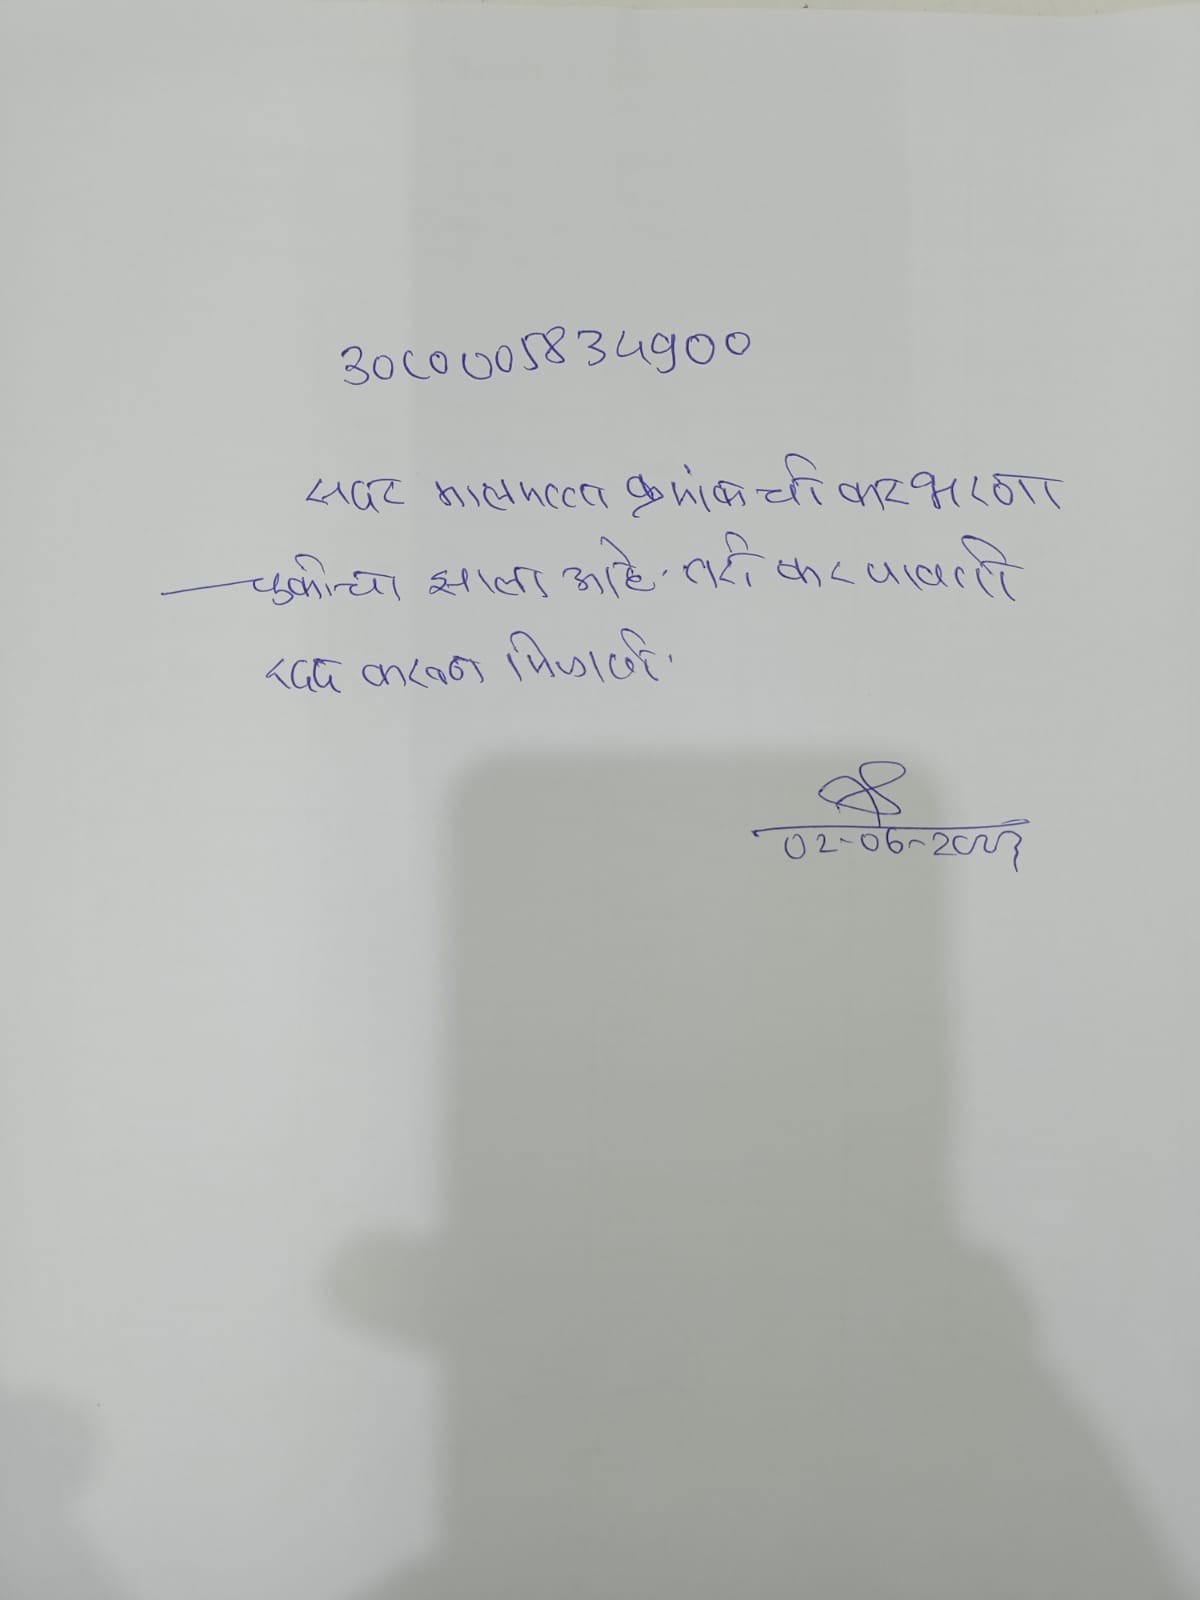 3000005834900
सदर मालमत्ता क्रमांकाची कर भरणा
चुकीचा झाला आहे. तरी कर पावती
रद्द करून मिळावी.
02-06-202